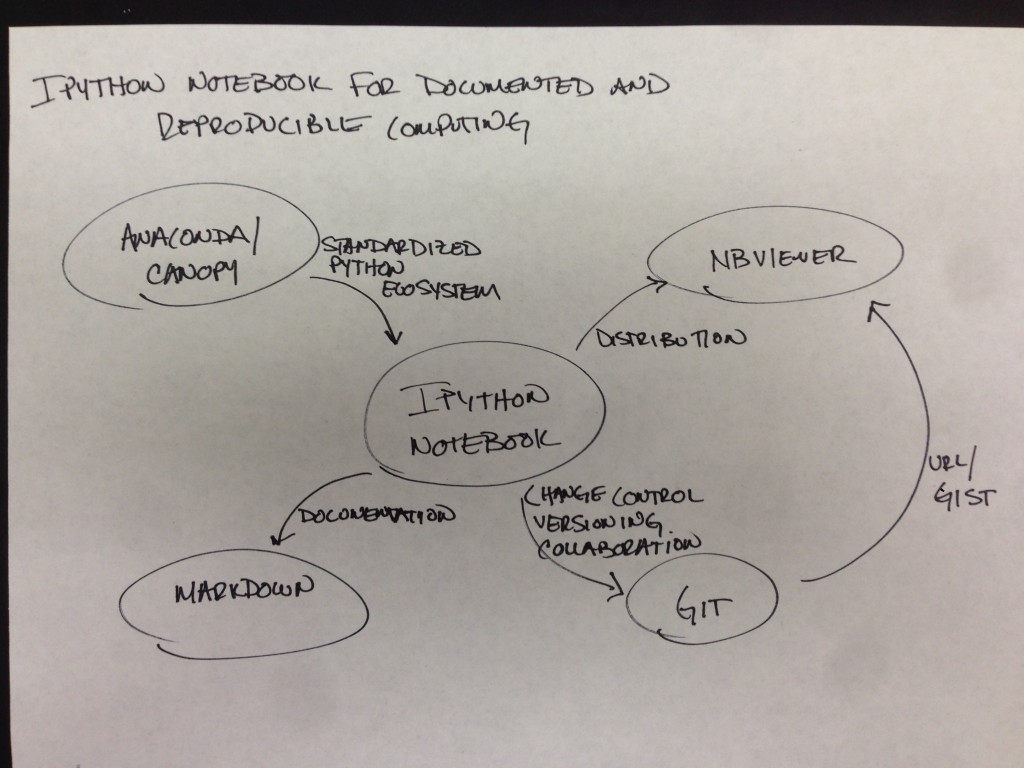 IPYTHON NOTEBOOK FOR DOCUMENTED AND
REPRODUCIBLE COMPUTING
ANACONDA/
CANOPY
STANDARDIZED
PYTHON
ECOSYSTEM
NBVIEWER
DISTRIBUTION
IPYTHON
NOTEBOOK
URL/
GIST
DOCUMENTATION
CHANGE CONTROL
VERSIONING
COLLABORATION
MARKDOWN
GIT